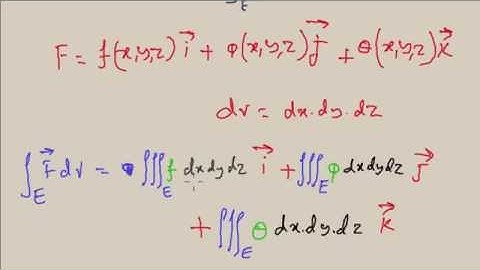 E
F = f(x,y,z) i⃗ + φ(x,y,z) j⃗ + θ(x,y,z) k⃗
dv = dx.dy.dz
∫_E F⃗ dv = ∭_E f dxdydz i⃗ + ∭_E φ dxdydz j⃗
+ ∭_E θ dx.dy.dz k⃗